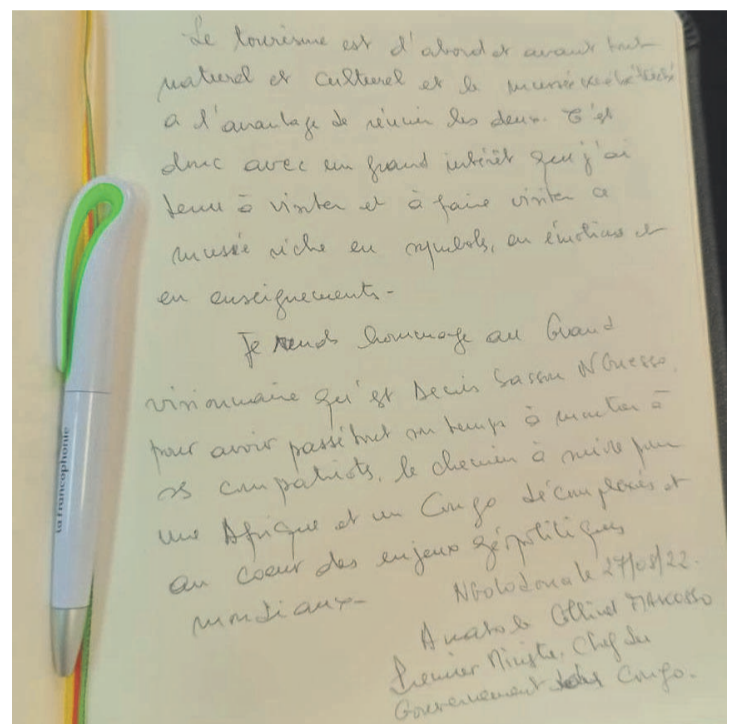 Le tourisme est d'abord et avant tout
naturel et culturel et le musée kiebé-kiebé
a l'avantage de réunir les deux. C'est
donc avec un grand intérêt que j'ai
tenu à visiter et à faire visiter ce
musée riche en symbols, en émotions et
en enseignements-
Je rends hommage au Grand
visionnaire qu'est Denis Sassou N'Guesso,
pour avoir passé tout son temps à montrer à
ses compatriots, le chemin à suivre pour
une Afrique et un Congo décomplexés et
au coeur des enjeux géopolitiques
mondiaux-
le 27/08/22.
Anatole Collinet MAKOSSO
Premier Ministre, Chef du
Gouvernement Congo.
la francophonie